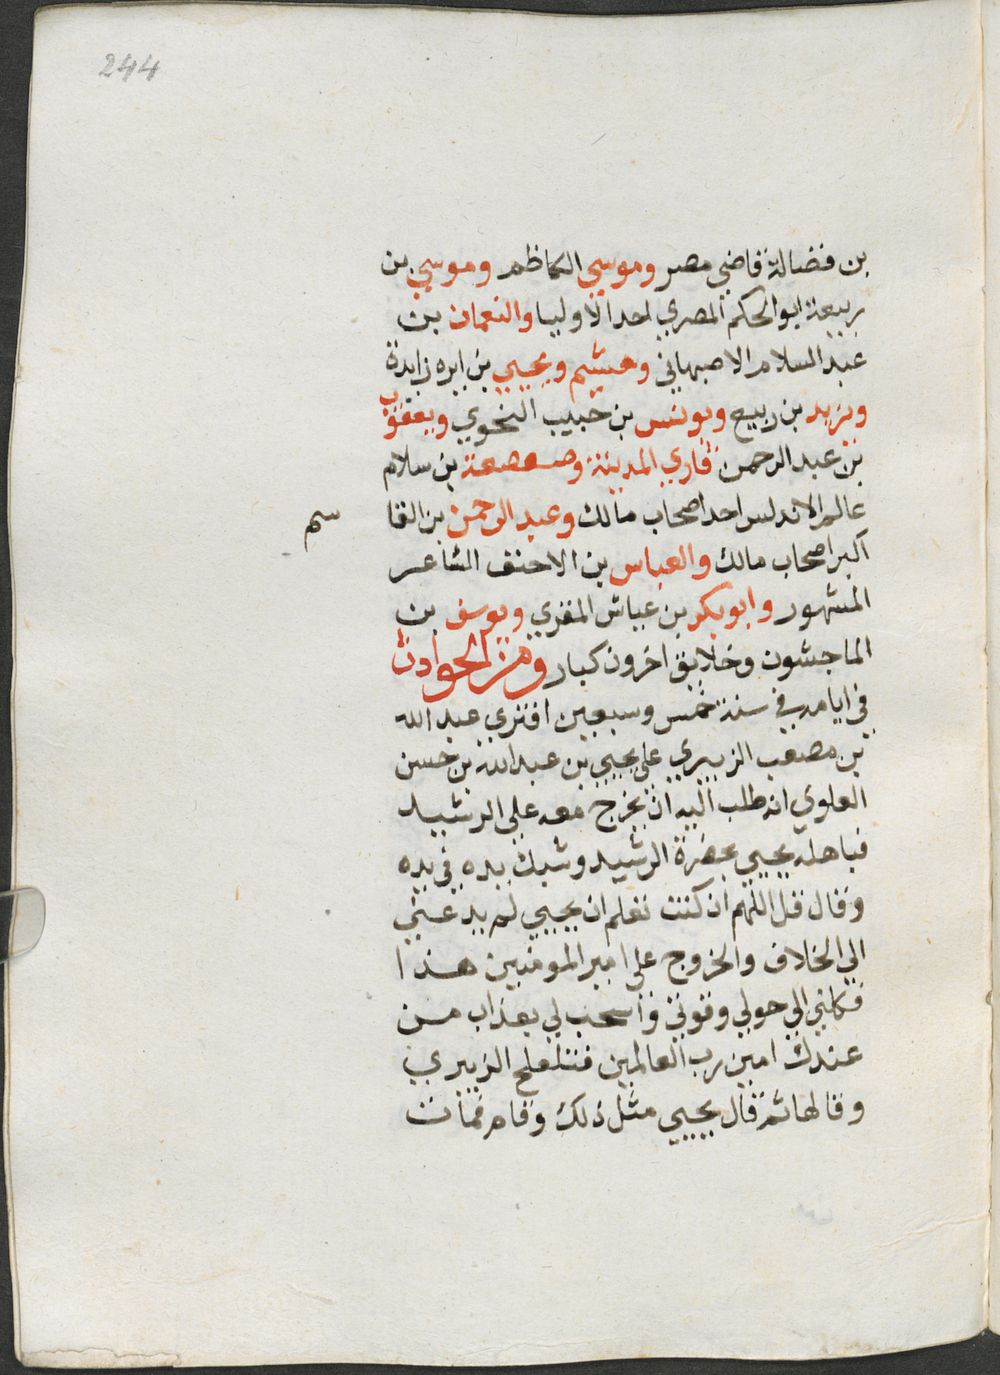 244
بن فضالة قاضي مصر وموسي الكاظم وموسي بن
ربيعة ابو الحكم المصري احد الاوليا والنعمان بن
عبد السلام الاصبهاني وهشيم ويحيي بن ابره زايدة
ويزيد بن ربيع ويونس بن حبيب النحوي ويعقوب
بن عبد الرحمن قاري المدينة وصعصعة بن سلام
عالم الاندلس احد اصحاب مالك وعبد الرحمن بن القا
سم
اكبر اصحاب مالك والعباس بن الاحنف الشاعر
المشهور وابو بكر بن عياش المقري ويوسف بن
الماجشون وخلايق اخرون كبار ومن الحوادث
في ايامه في سنة خمس وسبعين افتري عبد الله
بن مصعب الزبيري علي يحيي بن عبد الله بن حسن
العلوي انه طلب اليه ان يخرج معه علي الرشيد
فباهله يحيي بحضرة الرشيد وشبك يده في يده
وقال قل اللهم ان كنت تعلم ان يحيي لم يدعني
الي الخلاف والخروج علي امير المومنين هذا
فكلني الي حولي وقوتي واسحب لي بعذاب من
عندك امين رب العالمين فتلعلج الزبيري
وقالها ثم قال يحيي مثل ذلك وقام فمات